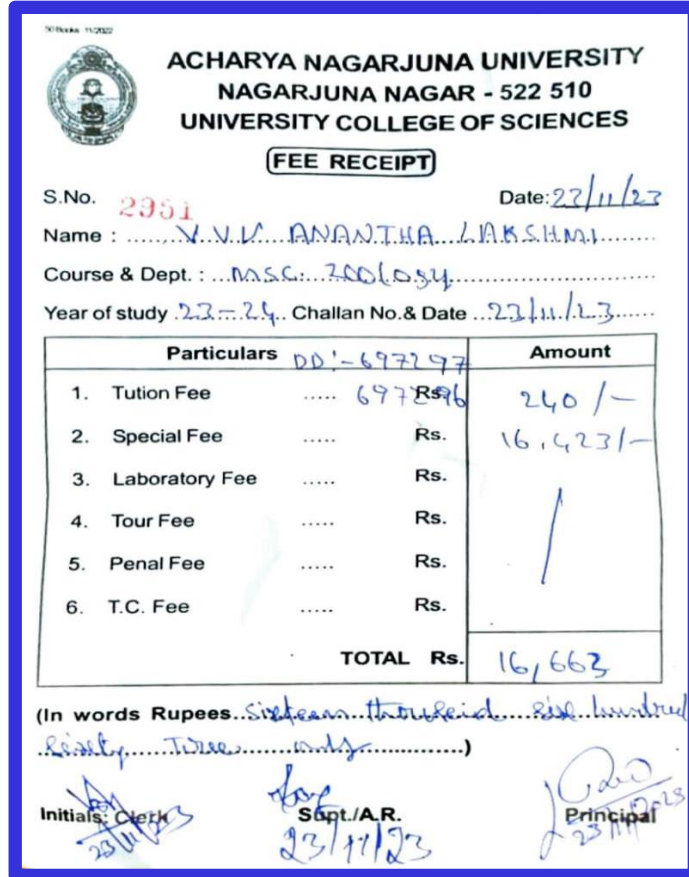 50 Books 11/2022
ACHARYA NAGARJUNA UNIVERSITY
NAGARJUNA NAGAR - 522 510
UNIVERSITY COLLEGE OF SCIENCES
FEE RECEIPT
S.No. 2951 Date: 23/11/23
Name : ...... V.V.V. ANANTHA LAKSHMI
Course & Dept. : MSC. Zoology
Year of study 23-24 Challan No.& Date 23/11/23
Particulars DD:-697297 Amount
1. Tution Fee ..... 697296 Rs. 240/-
2. Special Fee ..... Rs. 16,423/-
3. Laboratory Fee ..... Rs.
4. Tour Fee ..... Rs.
5. Penal Fee ..... Rs.
6. T.C. Fee ..... Rs.
TOTAL Rs. 16,663
(In words Rupees Sixteen thousand six hundred
Sixty Three only)
Initials: Clerk Supt./A.R. Principal
23/11/23 23/11/23 23/11/2023